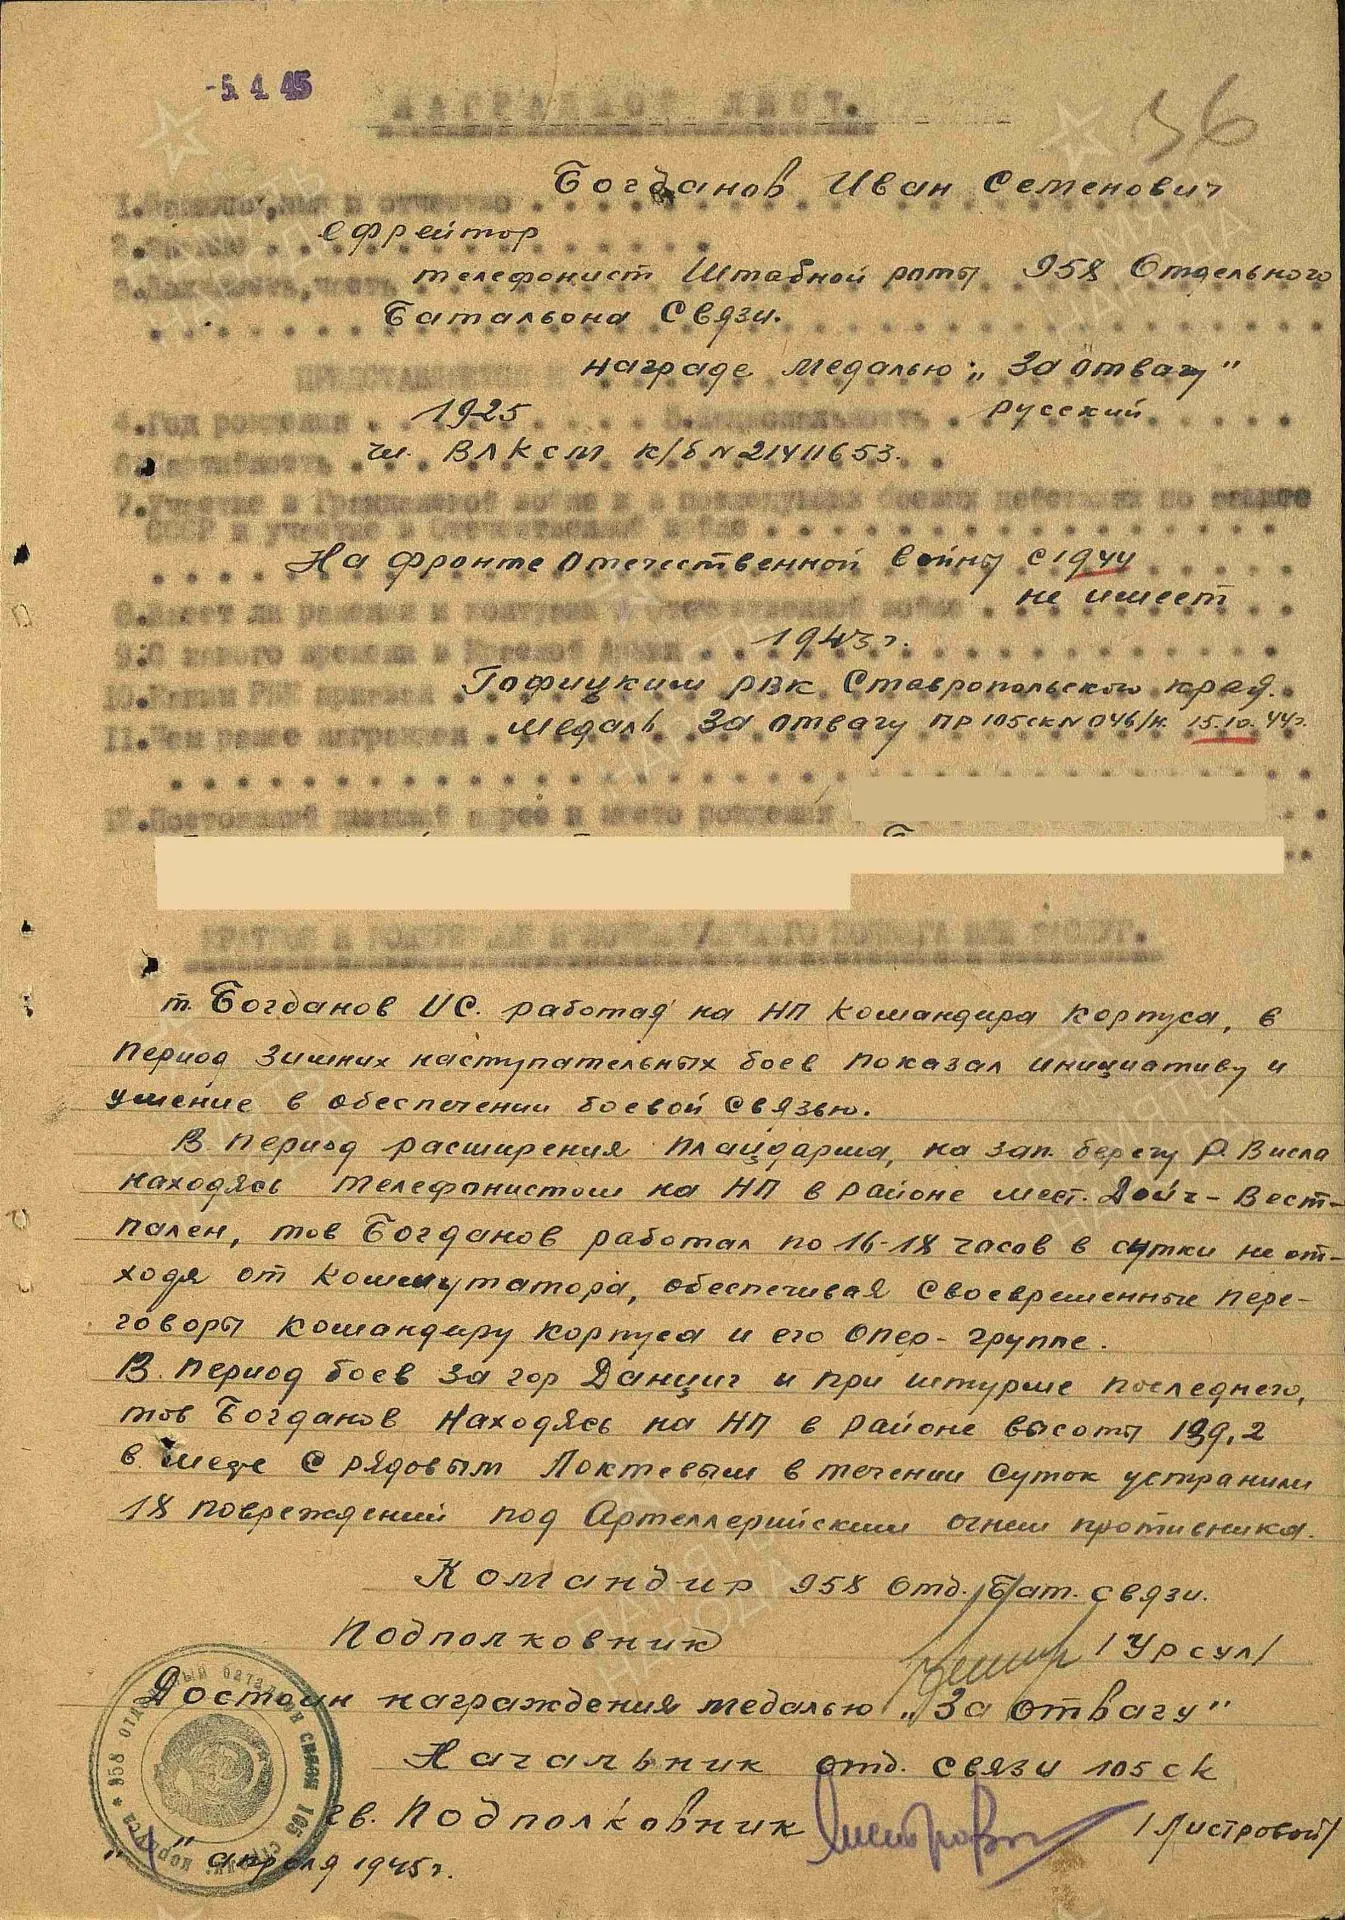 -5.4.45
НАГРАДНОЙ ЛИСТ.
36
Богданов Иван Семенович
1.Фамилия,имя и отчество
ефрейтор
2.Звание
телефонист Штабной роты 958 Отдельного
3.Должность,часть
Батальона Связи.
ПРЕДСТАВЛЯЕТСЯ К награде медалью: „За отвагу"
4.Год рождения 1925 5.Национальность русский
6.Партийность чл. ВЛКСМ к/б N 21411653.
7.Участие в Гражданской войне и в последующих боевых действиях по защите
СССР и участие в Отечественной войне
На фронте Отечественной войны с 1944
8.Имеет ли ранения и контузии в Отечественной войне не имеет
9.С какого времени в Красной Армии 1943 г.
10.Каким РВК призван Гофицким РВК Ставропольского край.
11.Чем ранее награжден Медаль За отвагу пр 105 ск N 046/н. 15.10.44г.
12.Постоянный домашний адрес и место рождения
т. Богданов ИС. работая на НП Командира Корпуса, в
период зимних наступательных боев показал инициативу и
умение в обеспечении боевой связью.
В период расширения плацдарма, на зап. берегу р. Висла
находясь телефонистом на НП в районе мест. Дойч-Вест-
пален, тов Богданов работал по 16-18 часов в сутки не от-
ходя от коммутатора, обеспечивая своевременные пере-
говоры командиру корпуса и его опер-группе.
В период боев за гор Данциг и при штурме последнего,
тов Богданов находясь на НП в районе высоты 139,2
в месте с рядовым Локтевым в течении суток устранили
18 повреждений под Артеллерийским огнем противника.
Командир 958 Отд. Бат. связи.
Подполковник /Урсул/
Достоин награждения медалью „За отвагу"
Начальник отд. связи 105 ск
гв. Подполковник /Листровой/
апреля 1945г.
958 отдельный батальон связи 105 стрелк. корпуса
ПАМЯТЬ НАРОДА